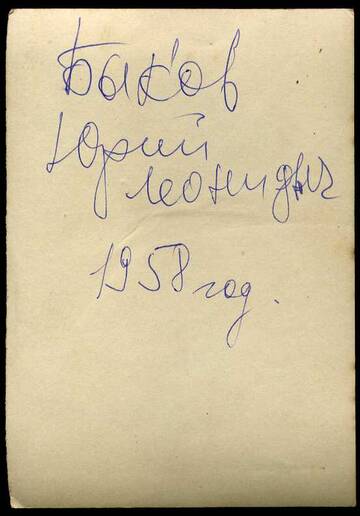 Баков
Юрий
Леонидыч
1958 год.